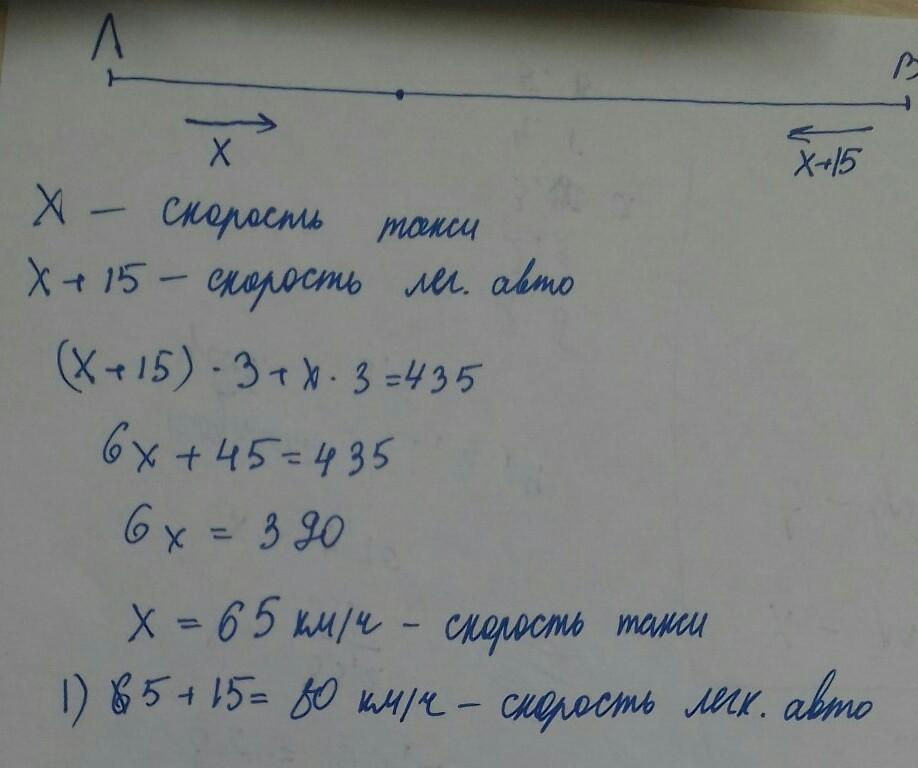 А В
х х+15
х — скорость такси
х + 15 — скорость лег. авто
(х + 15) · 3 + х · 3 = 435
6х + 45 = 435
6х = 390
х = 65 км/ч - скорость такси
1) 65 + 15 = 80 км/ч — скорость легк. авто